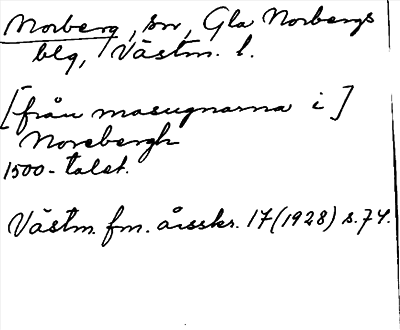 Norberg, sn, Gla Norbergs
blg, Västm. l.
[från masugnarna i]
Norebergh
1500-talet.
Västm. fm. årsskr. 17 (1928) s. 74.